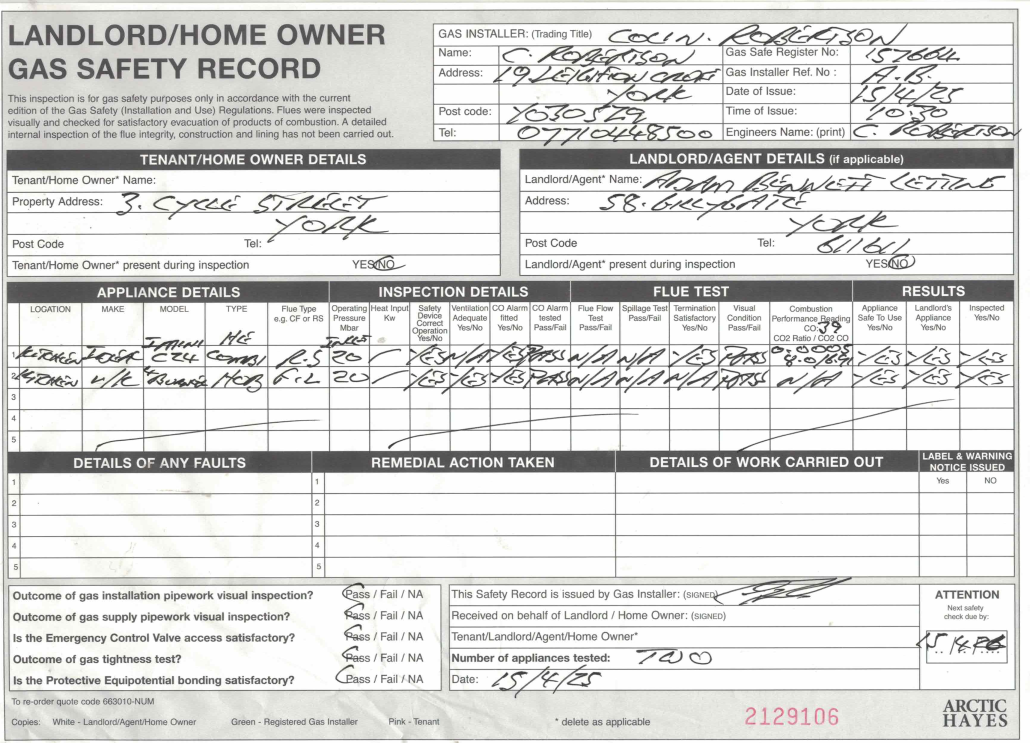 LANDLORD/HOME OWNER
GAS SAFETY RECORD
This inspection is for gas safety purposes only in accordance with the current
edition of the Gas Safety (Installation and Use) Regulations. Flues were inspected
visually and checked for satisfactory evacuation of products of combustion. A detailed
internal inspection of the flue integrity, construction and lining has not been carried out.
GAS INSTALLER: (Trading Title) COLIN. ROBERTSON
Name: C. ROBERTSON Gas Safe Register No: 157664
Address: 19 LEIGHTON CROFT Gas Installer Ref. No : A.B.
YORK Date of Issue: 15/4/25
Post code: YO30 5Z9 Time of Issue: 10:30
Tel: 07710448500 Engineers Name: (print) C. ROBERTSON
TENANT/HOME OWNER DETAILS
Tenant/Home Owner* Name:
Property Address: 3. CYCLE STREET
YORK
Post Code Tel:
Tenant/Home Owner* present during inspection YES/NO
LANDLORD/AGENT DETAILS (if applicable)
Landlord/Agent* Name: ADAM BENNETT LETTING
Address: 58. GILLYGATE
YORK
Post Code Tel: 611611
Landlord/Agent* present during inspection YES/NO
APPLIANCE DETAILS INSPECTION DETAILS FLUE TEST RESULTS
LOCATION MAKE MODEL TYPE Flue Type e.g. CF or RS Operating Pressure Mbar Heat Input Kw Safety Device Correct Operation Yes/No Ventilation Adequate Yes/No CO Alarm fitted Yes/No CO Alarm tested Pass/Fail Flue Flow Test Pass/Fail Spillage Test Pass/Fail Termination Satisfactory Yes/No Visual Condition Pass/Fail Combustion Performance Reading CO: 39 CO2 Ratio / CO2 CO Appliance Safe To Use Yes/No Landlord's Appliance Yes/No Inspected Yes/No
1 KITCHEN IDEAL C24 HE COMBI R.S INLET 20 YES N/A YES PASS N/A N/A YES PASS 0.0005 YES YES YES
2 KITCHEN U/K HOB F.L 20 YES YES YES PASS N/A N/A YES PASS N/A YES YES YES
3
4
5
DETAILS OF ANY FAULTS REMEDIAL ACTION TAKEN DETAILS OF WORK CARRIED OUT LABEL & WARNING NOTICE ISSUED
Yes NO
1 1
2 2
3 3
4 4
5 5
Outcome of gas installation pipework visual inspection? Pass / Fail / NA
Outcome of gas supply pipework visual inspection? Pass / Fail / NA
Is the Emergency Control Valve access satisfactory? Pass / Fail / NA
Outcome of gas tightness test? Pass / Fail / NA
Is the Protective Equipotential bonding satisfactory? Pass / Fail / NA
This Safety Record is issued by Gas Installer: (SIGNED)
Received on behalf of Landlord / Home Owner: (SIGNED)
Tenant/Landlord/Agent/Home Owner*
Number of appliances tested: TWO
Date: 15/4/25
ATTENTION
Next safety
check due by:
15.4.26
To re-order quote code 663010-NUM
Copies: White - Landlord/Agent/Home Owner Green - Registered Gas Installer Pink - Tenant * delete as applicable
2129106
ARCTIC
HAYES